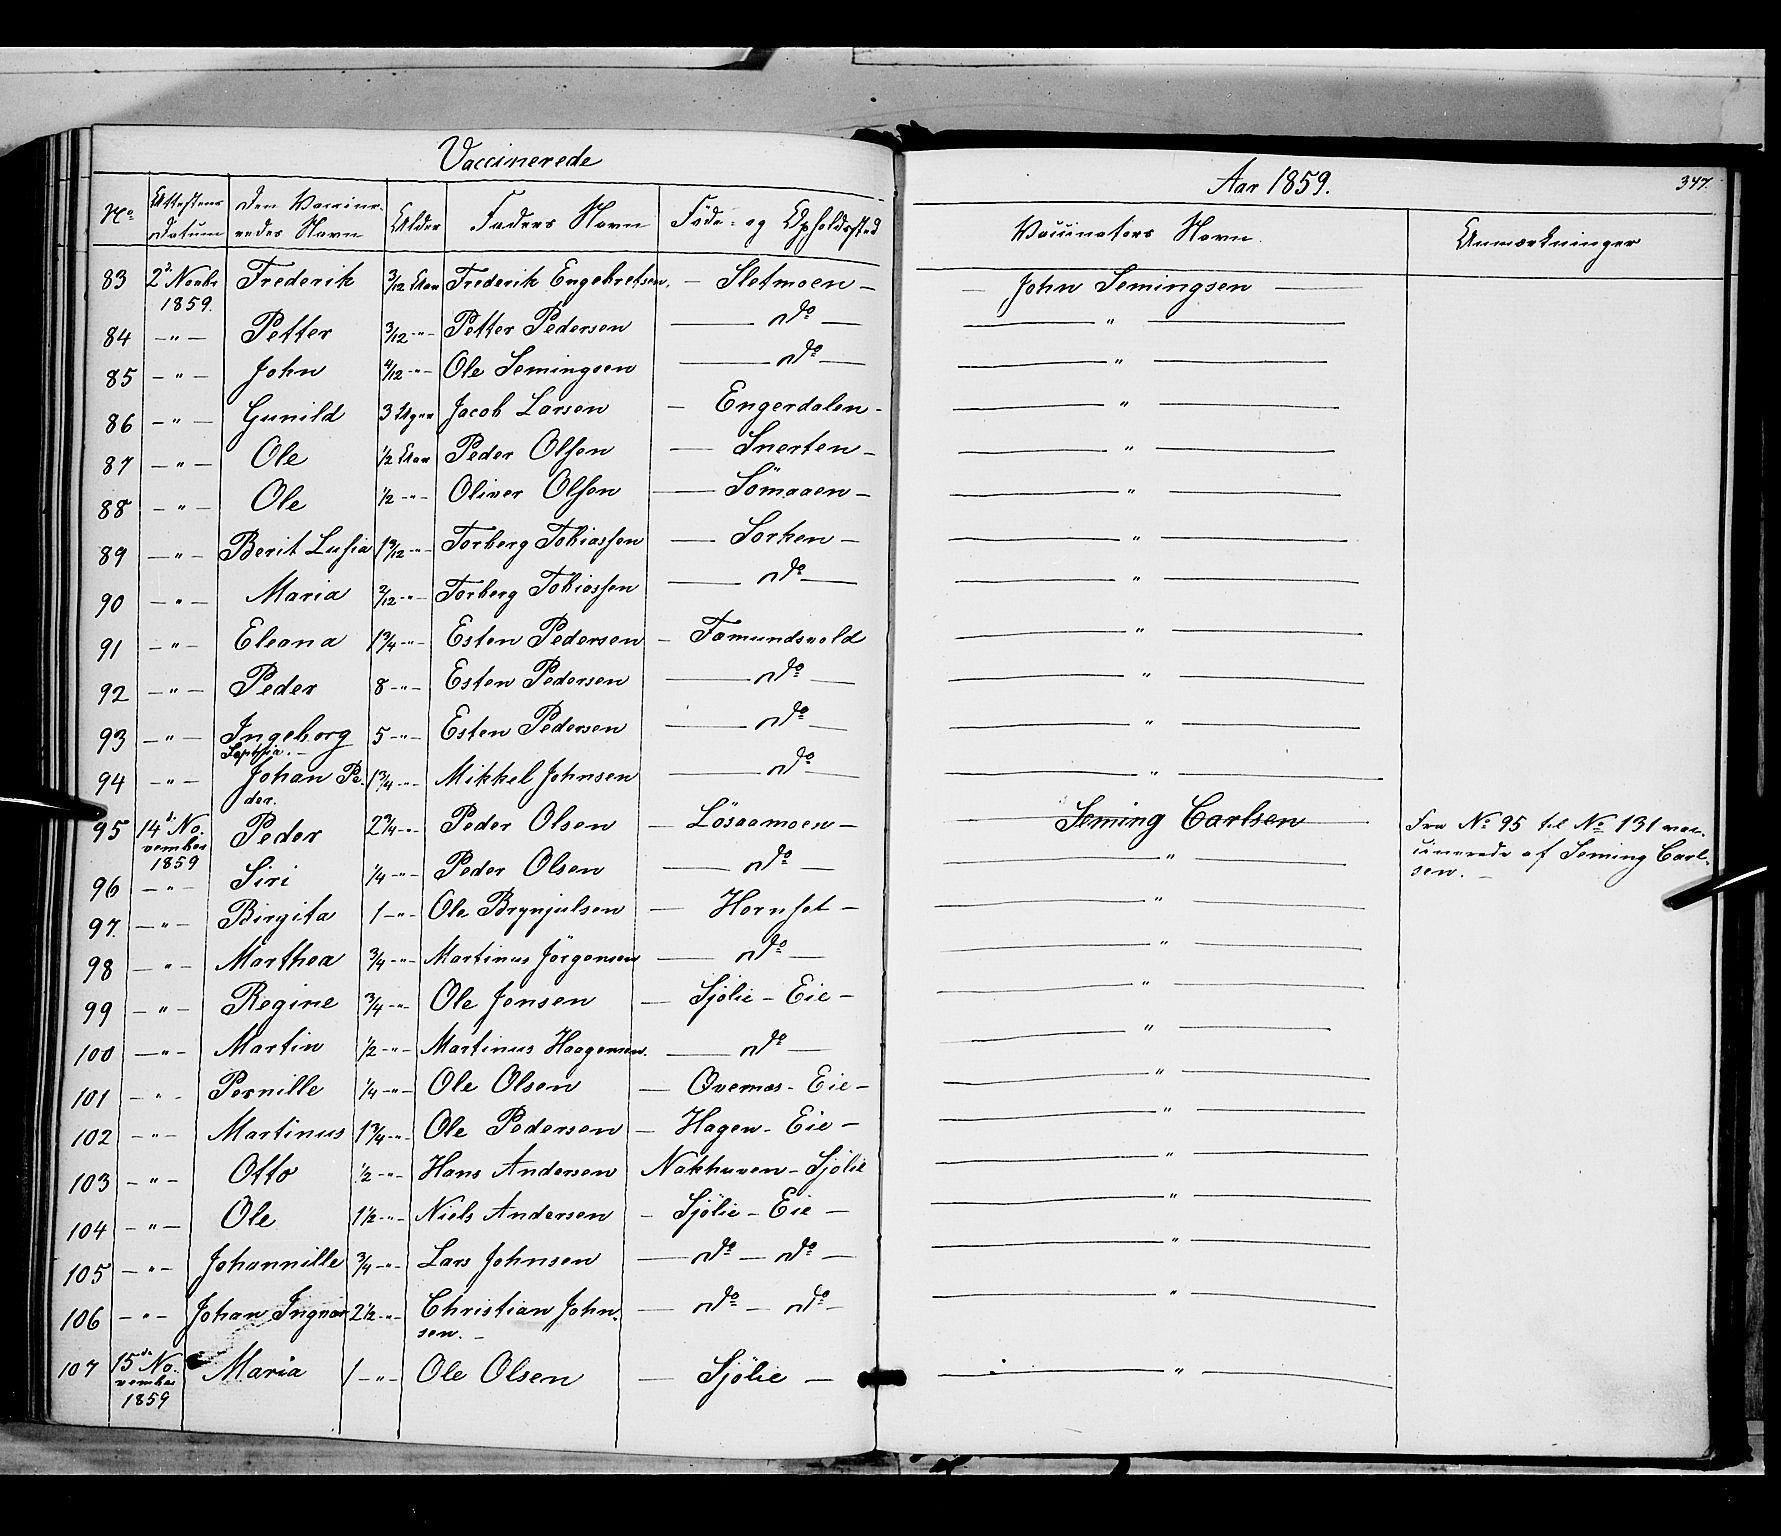 Vaccinerede
Aar 1859.
347.
No Attestens Datum Den Vaccine-redes Navn Alder Faders Navn Føde- og Opholdssted Vaccinators Navn. Anmærkninger
83 2d Novbr 1859. Frederik 3/12 Aar Frederik Engebretsen. — Sletmoen — — John Semingsen —
84 — " — Petter 3/12 -"- Petter Pedersen — do — — " —
85 — " — John 4/12 -"- Ole Semingsen — do — — " —
86 — " — Gunild 3 Uger Jacob Larsen — Engerdalen — — " —
87 — " — Ole 1/2 Aar Peder Olsen — Snerten — — " —
88 — " — Ole 1/2 -"- Oliver Olsen — Sömaaen — — " —
89 — " — Berit Lusia 1 9/12 -"- Torberg Tobiassen — Sorken — — " —
90 — " — Maria 2/12 -"- Torberg Tobiassen — do — — " —
91 — " — Eleana 1 3/4 -"- Esten Pedersen — Famundsvold — " —
92 — " — Peder 8 -"- Esten Pedersen — do — — " —
93 — " — Ingeborg Sophia. — 5 -"- Esten Pedersen — do — — " —
94 — " — Johan Pe-der. 1 3/4 -"- Mikkel Johnsen — do — — " —
95 14d No-vember 1859 Peder 2 3/4 -"- Peder Olsen — Lösaamoen — Seming Carlsen Fra No 95 til No 131 vac-
cinerede af Seming Carl-
sen. —
96 — " — Siri 1/4 -"- Peder Olsen — do — — " —
97. — " — Birgita 1 -"- Ole Brynjulsen — Hornset — — " —
98 — " — Marthea 3/4 -"- Martinus Jörgensen — do — — " —
99 — " — Regine 3/4 -"- Ole Jensen — Sjölie - Eie — — " —
100 — " — Martin 1/2 -"- Martinus Haagensen. — do — — " —
101 - " - Pernille 1/4 -"- Ole Olsen — Qvernæs - Eie — — " —
102 — " — Martinus 1 3/4 -"- Ole Pedersen — Hagen - Eie — — " —
103 — " — Otto 1/2 -"- Hans Andersen Nakhuven - Sjölie — " —
104 — " — Ole 1 1/2 -"- Niels Andersen — Sjölie - Eie — — " —
105 — " — Johannille 3/4 -"- Lars Johnsen — do — do — — " —
106 — " — Johan Ingvar 2 1/2 -"- Christian John-sen. — — do — do — — " —
107 15de No-vember 1859 Maria 1 -"- Ole Olsen — Sjölie — — " —